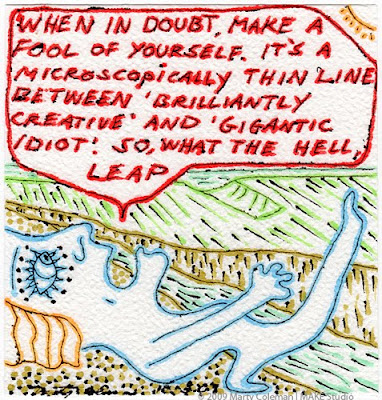 WHEN IN DOUBT, MAKE A
FOOL OF YOURSELF. IT'S A
MICROSCOPICALLY THIN LINE
BETWEEN 'BRILLIANTLY
CREATIVE' AND 'GIGANTIC
IDIOT! SO, WHAT THE HELL,
LEAP
© 2009 Marty Coleman | MAKE Studio